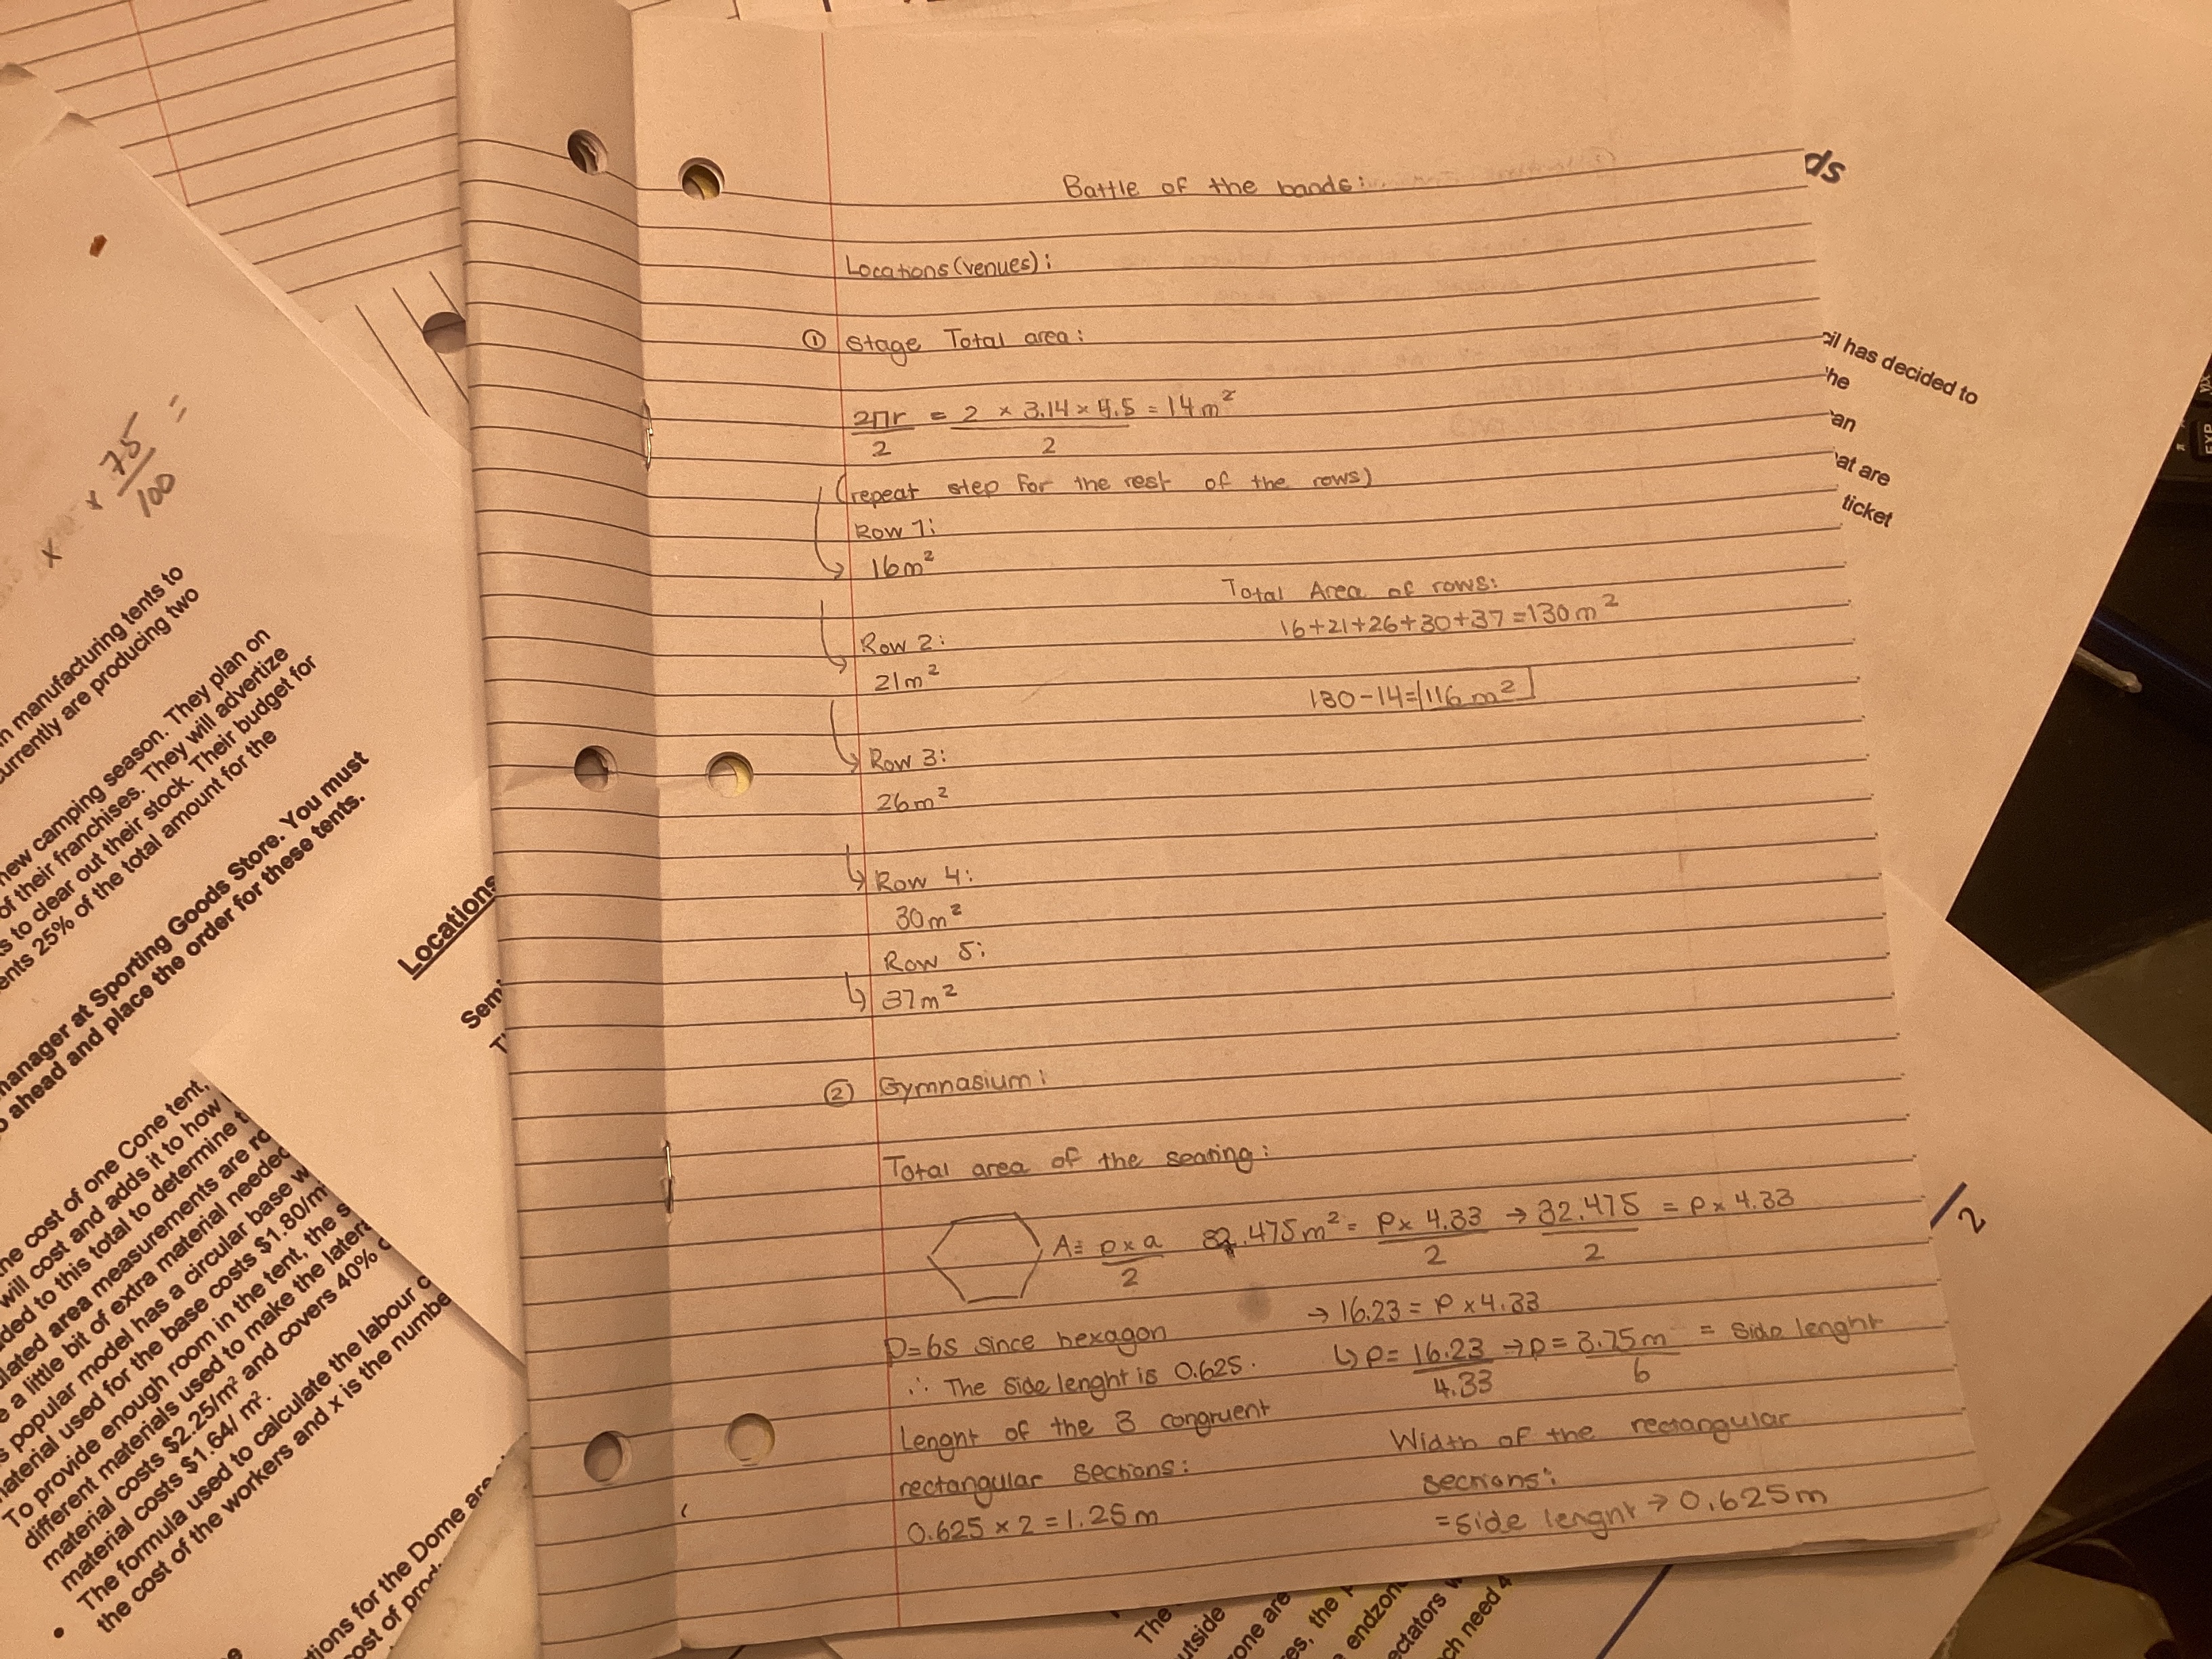 Battle of the bands:
Locations (venues):
① Stage Total area:
2πr/2 = 2 × 3.14 × 4.5/2 = 14m²
(repeat step for the rest of the rows)
Row 1:
16m²
Row 2:
21m²
Row 3:
26m²
Row 4:
30m²
Row 5:
37m²
Total Area of rows:
16+21+26+30+37=130m²
130-14=116m²
② Gymnasium:
Total area of the seating:
A= p×a/2 32.475m² = P× 4.33/2 → 32.475/2 = P× 4.33
→ 16.23 = P×4.33
↳ P= 16.23/4.33 → P= 3.75m/6 = Side lenght
P=6s since hexagon
∴ The side lenght is 0.625.
Lenght of the 3 congruent
rectangular sections:
0.625 × 2 = 1.25m
Width of the rectangular
sections:
=side lenght → 0.625m
x × 75/100 =
n manufacturing tents to
urrently are producing two
new camping season. They plan on
of their franchises. They will advertize
s to clear out their stock. Their budget for
ents 25% of the total amount for the
manager at Sporting Goods Store. You must
o ahead and place the order for these tents.
he cost of one Cone tent,
will cost and adds it to how
ded to this total to determine t
ulated area measurements are ro
e a little bit of extra material needed
s popular model has a circular base w
material used for the base costs $1.80/m
To provide enough room in the tent, the s
different materials used to make the latera
material costs $2.25/m² and covers 40% o
material costs $1.64/ m².
• The formula used to calculate the labour c
the cost of the workers and x is the numbe
tions for the Dome are
cost of prod
Locations
Semi
T
ds
cil has decided to
he
an
at are
ticket
/2
The
utside
zone are
es, the
endzon
ectators w
ch need 4
EXP